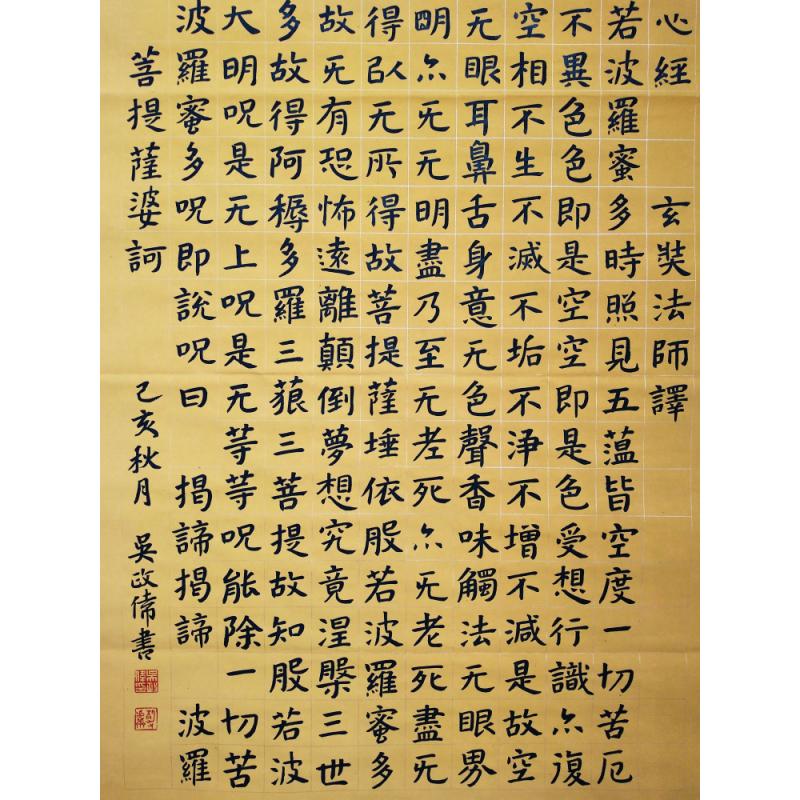 心經 玄奘法師譯
若波羅蜜多時照見五蕰皆空度一切苦厄
不異色色即是空空即是色受想行識亦復
空相不生不滅不垢不浄不增不減是故空
无眼耳鼻舌身意无色聲香味觸法无眼界
明亦旡无明盡乃至无老死亦旡老死盡旡
得以无所得故菩提薩埵依般若波羅蜜多
故旡有恐怖遠離顛倒夢想究竟涅槃三世
多故得阿耨多羅三藐三菩提故知般若波
大明呪是无上呪是无等等呪能除一切苦
波羅蜜多呪即說呪曰 揭諦揭諦 波羅
菩提薩婆訶 己亥秋月 吳政偉書